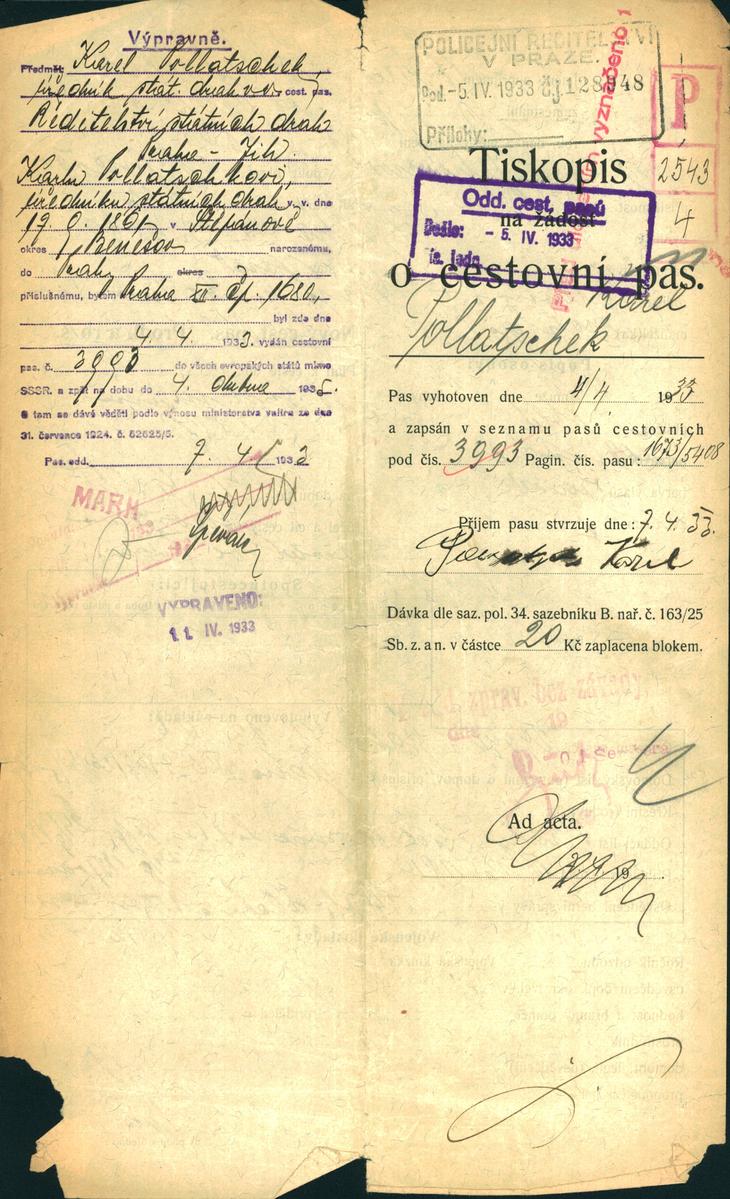 Výpravně.
Předmět: Karel Pollatschek,
úředník stát. drah v v. cest. pas.
Ředitelství státních drah
Praha - Jih.
Karlu Pollatschkovi,
úředníku státních drah v v. dne
v Štěpánově
okres Benešov narozenému,
do Prahy okres
příslušnému, bytem Praha XII. čp. 1680,
byl zde dne
4. 4. 1933 vydán cestovní
pas. č. 3993 do všech evropských států mimo
SSSR. a zpět na dobu do 4. dubna 1935.
O tom se dává věděti podle výnosu ministerstva vnitra ze dne
31. července 1924. č. 52625/5.
Pas. odd. 7. 4. 1933
MARH
VYPRAVENO:
11. IV. 1933
POLICEJNÍ ŘEDITELSTVÍ
V PRAZE.
Pod. -5. IV. 1933 Čj. 128948
Přílohy:
vyznačeno
P
2543
4
Tiskopis
Odd. cest. pasů
na žádost
Došlo: - 5. IV. 1933
o cestovní pas.
Karel
Pollatschek
Pas vyhotoven dne 4/4. 1933
a zapsán v seznamu pasů cestovních
pod čís. 3993 Pagin. čís. pasu: 1673/5408
Příjem pasu stvrzuje dne: 7. 4. 33.
Karel
Dávka dle saz. pol. 34. sazebníku B. nař. č. 163/25
Sb. z. a n. v částce 20 Kč zaplacena blokem.
zprav. bez závady.
dne 19
Ad acta.
19